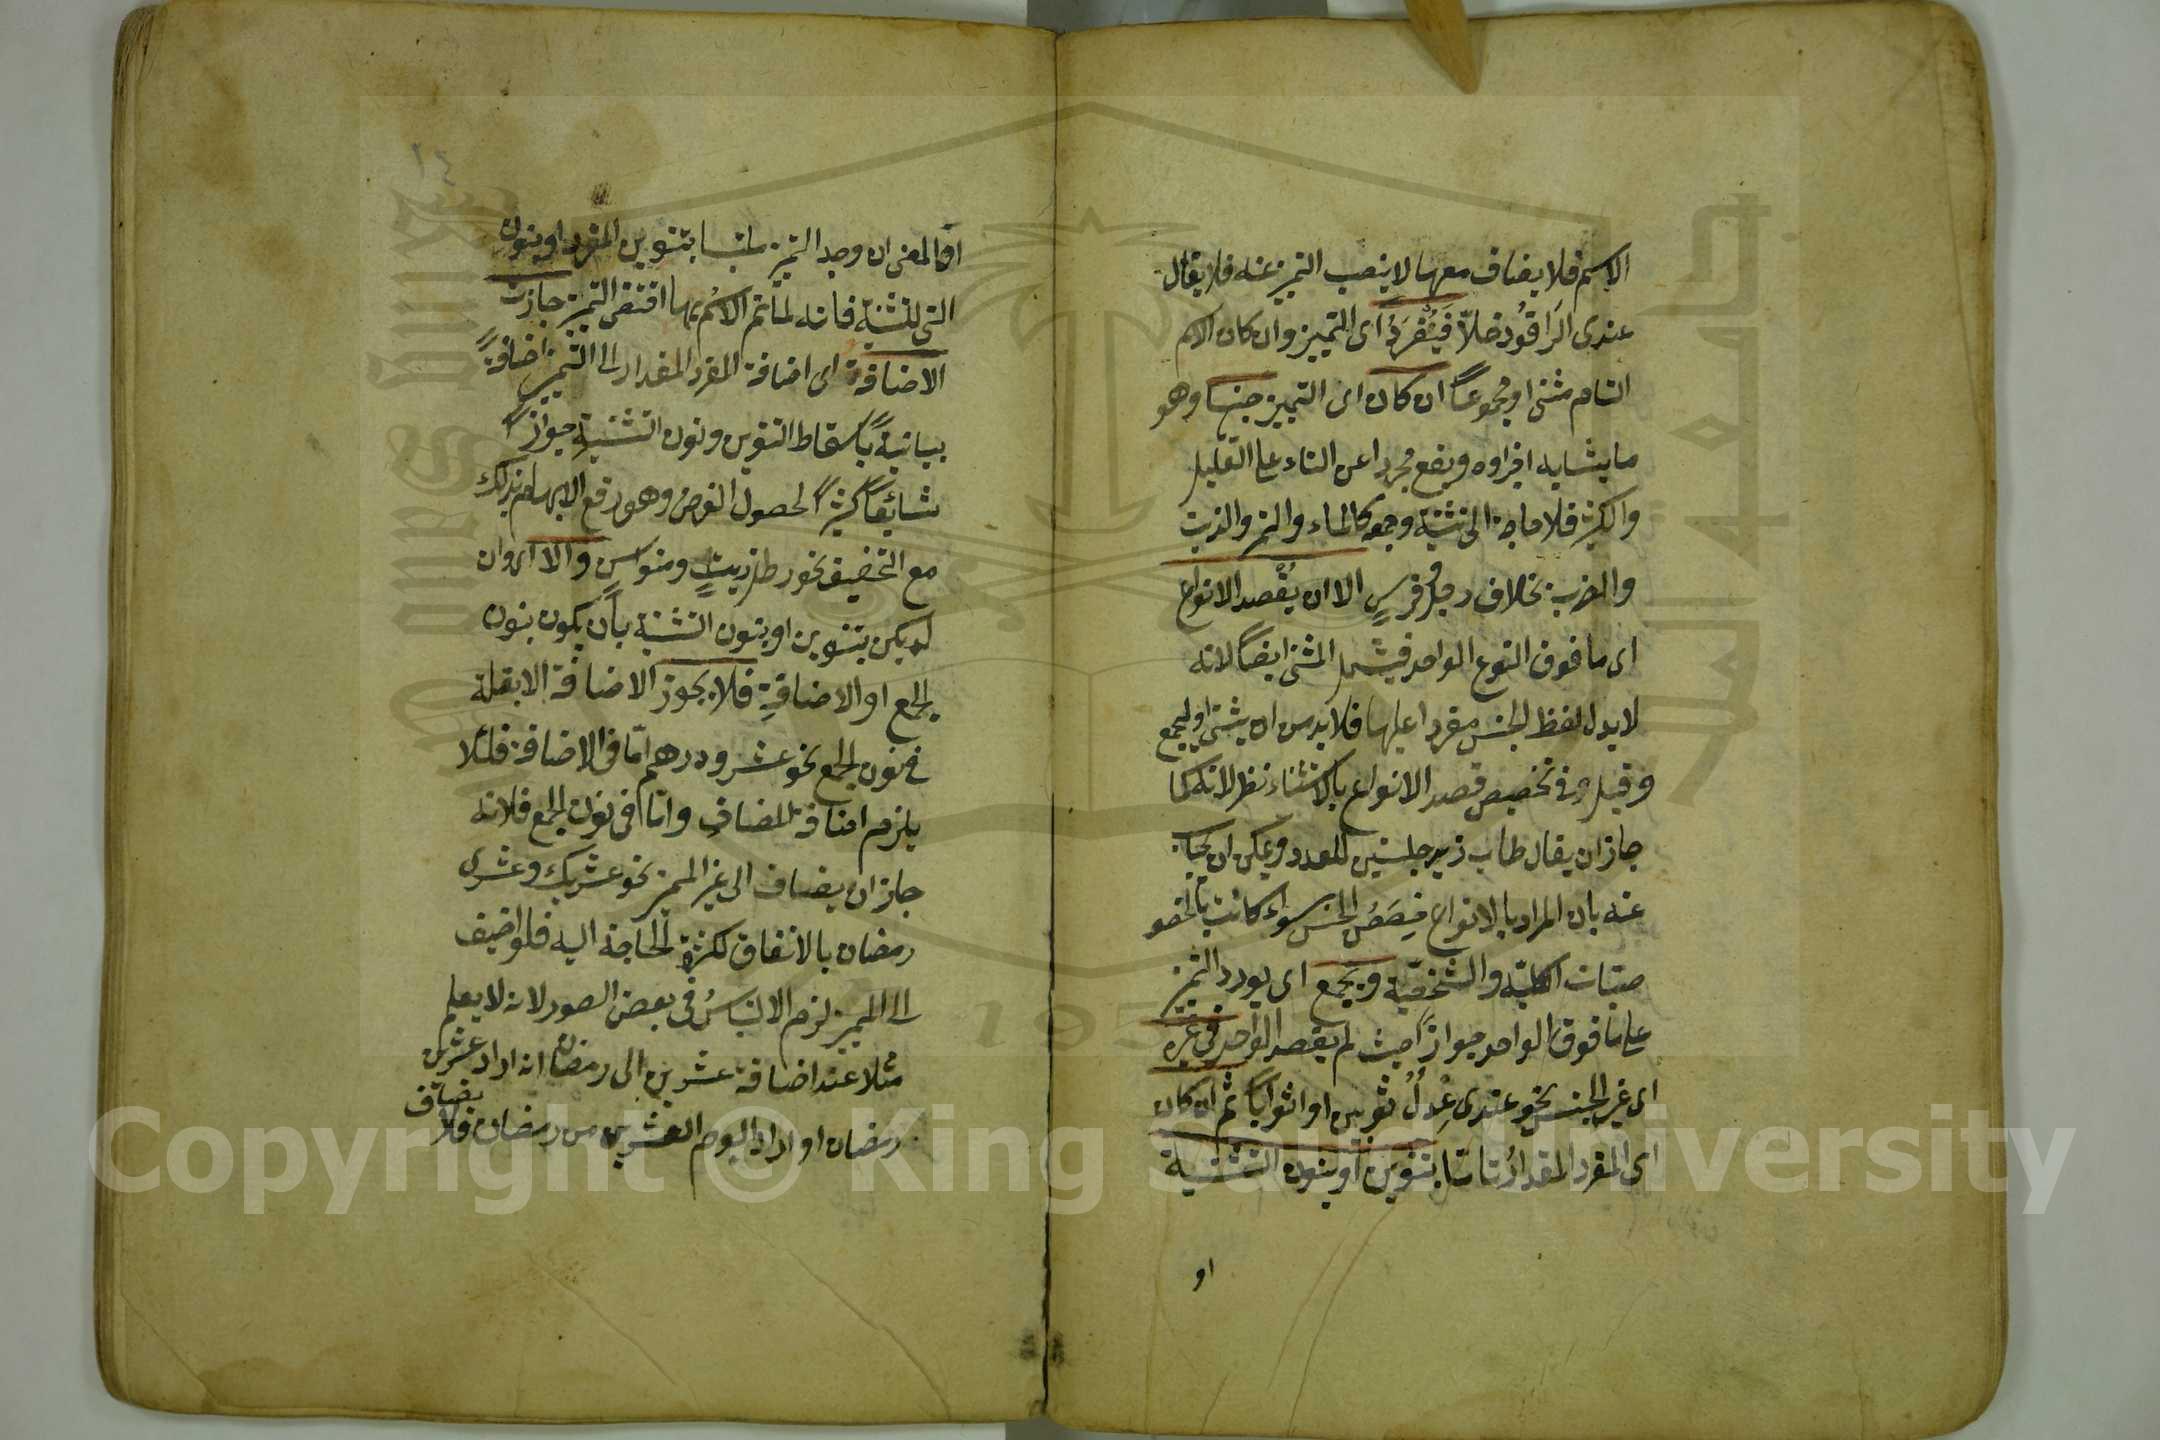 الاسم فلا يضاف معها لا ينصب التميز عنه فلا يقال
عندى الرَاقوُد خلاّ فَيُفْرَدُ اى التمييز وان كان الاسم
التام مثنى او مجموعاً ان كان اى التمييز جنسا وهو
ما يتشابه اجزاؤه ويقع مجردا عن التاء على القليل
والكثير فلا حاجة الى تثنية وجمعه كالماء والتمر والزيت
والضرب بخلاف رجل وفرسٍ الا ان يُقصد الانواع
اى ما فوق النوع الواحد فيشمل المثنى ايضاً لانه
لا يدل لفظ الجنس مفردا عليها فلا بد من ان يثنى او يجمع
وقيل وفى تخصيص قصد الانواع بالاستثناء نظر لانه كما
جاز ان يقال طاب زيد جلستين للعدد ويمكن ان يجاب
عنه بان المراد بالانواع حِصَصُ الجنس سواء كانت بالخصو
صيات الكليّة والشخصيّة ويجمع اى يورد التميز
على ما فوق الواحد جوازاً حيث لم يقصد الواحد فى غيره
اى غير الجنس نحو عندى عِدلُ ثوبين او اثواباً ثم ان كان
اى المفرد المقدار تاما بتنوين او بنون التثنية
او
او المعنى ان وجد التميز ملتبسا بتنوين المفرد او بنون
التى للتثنية فانه لما تم الاسُم بها اقتضى التميز جازت
الاضافة اى اضافة المفرد المقدار الى التميز اضافةً
بيانيةً باسقاط التنوين ونون التثنية جوازاً
شائعاً كثيراً لحصول الغرض وهو رفع الابهام بذلك
مع التخفيف نحو رطل زيتٍ ومنوا سمن والا اى وان
لم يكن بتنوين او بنون التثنية بأن يكون بنون
الجمع او الاضافةِ فلا يجوز الاضافة الا بقلة
فى نون الجمع نحو عشرو درهم امّا فى الاضافة فلئلا
يلزم اضافة للمضافِ واما فى نون الجمع فلانه
جاز ان يضاف الى غير المميز نحو عشريك وعشرى
رمضان بالاتفاق لكثرة الحاجة اليه فلو اضيف
الى المميز لزم الالتباسُ فى بعض الصور لانه لا يعلم
مثلا عند اضافة عشرين الى رمضان انه اراد عشرين
رمضان او اراد اليوم العشرين من رمضان فلا يضاف
١٤
Copyright © King Saud University